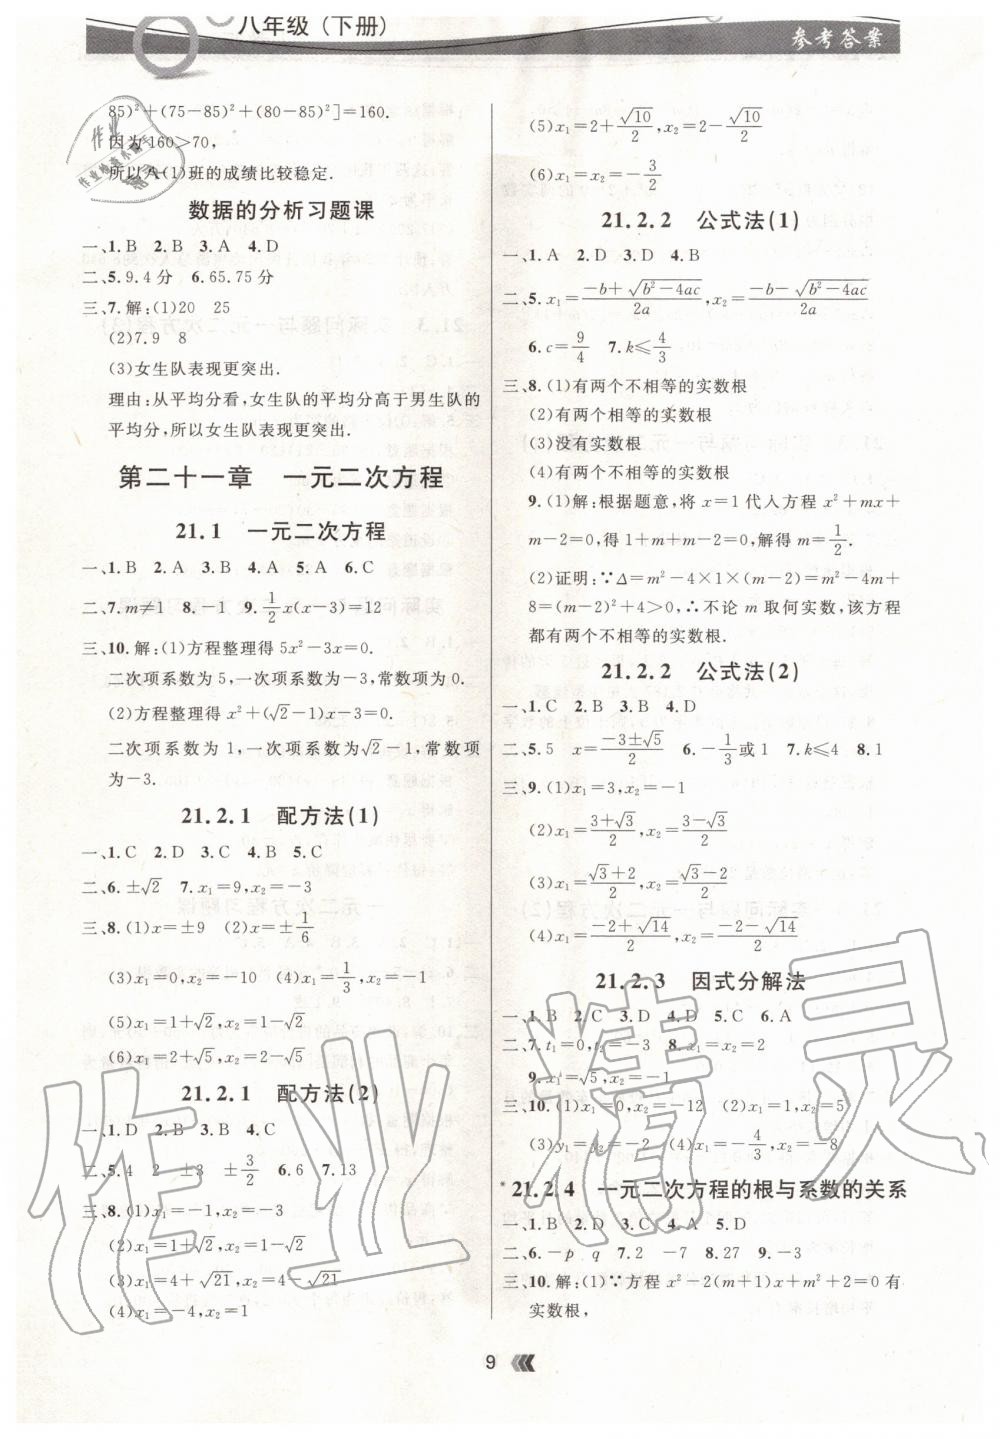 八年级(下册)
参考答案
85)²+(75-85)²+(80-85)²]=160.
因为160>70,
所以A(1)班的成绩比较稳定.
数据的分析习题课
一、1.B 2.B 3.A 4.D
二、5.9.4分 6.65.75分
三、7.解:(1)20 25
(2)7.9 8
(3)女生队表现更突出.
理由:从平均分看,女生队的平均分高于男生队的
平均分,所以女生队表现更突出.
第二十一章 一元二次方程
21.1 一元二次方程
一、1.B 2.A 3.B 4.A 5.A 6.C
二、7.m≠1 8.-1 9.1/2x(x-3)=12
三、10.解:(1)方程整理得5x²-3x=0.
二次项系数为5,一次项系数为-3,常数项为0.
(2)方程整理得x²+(√2-1)x-3=0.
二次项系数为1,一次项系数为√2-1,常数项
为-3.
21.2.1 配方法(1)
一、1.C 2.D 3.C 4.B 5.C
二、6.±√2 7.x₁=9,x₂=-3
三、8.(1)x=±9 (2)x=±1/6
(3)x₁=0,x₂=-10 (4)x₁=1/3,x₂=-1
(5)x₁=1+√2,x₂=1-√2
(6)x₁=2+√5,x₂=2-√5
21.2.1 配方法(2)
一、1.D 2.B 3.B 4.C
二、5.4 2 ±3 ±3/2 6.6 7.13
三、8.(1)x₁=-1,x₂=-3
(2)x₁=1+√5,x₂=1-√5
(3)x₁=4+√21,x₂=4-√21
(4)x₁=-4,x₂=1
(5)x₁=2+√10/2,x₂=2-√10/2
(6)x₁=x₂=-3/2
21.2.2 公式法(1)
一、1.A 2.D 3.D 4.B
二、5.x₁=(-b+√(b²-4ac))/2a,x₂=(-b-√(b²-4ac))/2a
6.c=9/4 7.k≤4/3
三、8.(1)有两个不相等的实数根
(2)有两个相等的实数根
(3)没有实数根
(4)有两个不相等的实数根
9.(1)解:根据题意,将x=1代人方程x²+mx+
m-2=0,得1+m+m-2=0,解得m=1/2.
(2)证明:∵Δ=m²-4×1×(m-2)=m²-4m+
8=(m-2)²+4>0,∴不论m取何实数,该方程
都有两个不相等的实数根.
21.2.2 公式法(2)
一、1.C 2.D 3.B 4.D
二、5.5 x=(-3±√5)/2 6.-1/3或1 7.k≤4 8.1
三、9.(1)x₁=3,x₂=-1
(2)x₁=(3+√3)/2,x₂=(3-√3)/2
(3)x₁=(√3+2)/2,x₂=(√3-2)/2
(4)x₁=(-2+√14)/2,x₂=(-2-√14)/2
21.2.3 因式分解法
一、1.B 2.C 3.D 4.D 5.C 6.A
二、7.t₁=0,t₂=-3 8.x₁=x₂=2
9.x₁=√5,x₂=-1
三、10.(1)x₁=0,x₂=-12 (2)x₁=1,x₂=5
(3)y₁=0,y₂=-2 (4)x₁=-4/3,x₂=3
*21.2.4 一元二次方程的根与系数的关系
一、1.B 2.D 3.C 4.A 5.D
二、6.-p q 7.2 -7 8.27 9.-3
三、10.解:(1)∵方程x²-2(m+1)x+m²+2=0有
实数根,
9
作业精灵